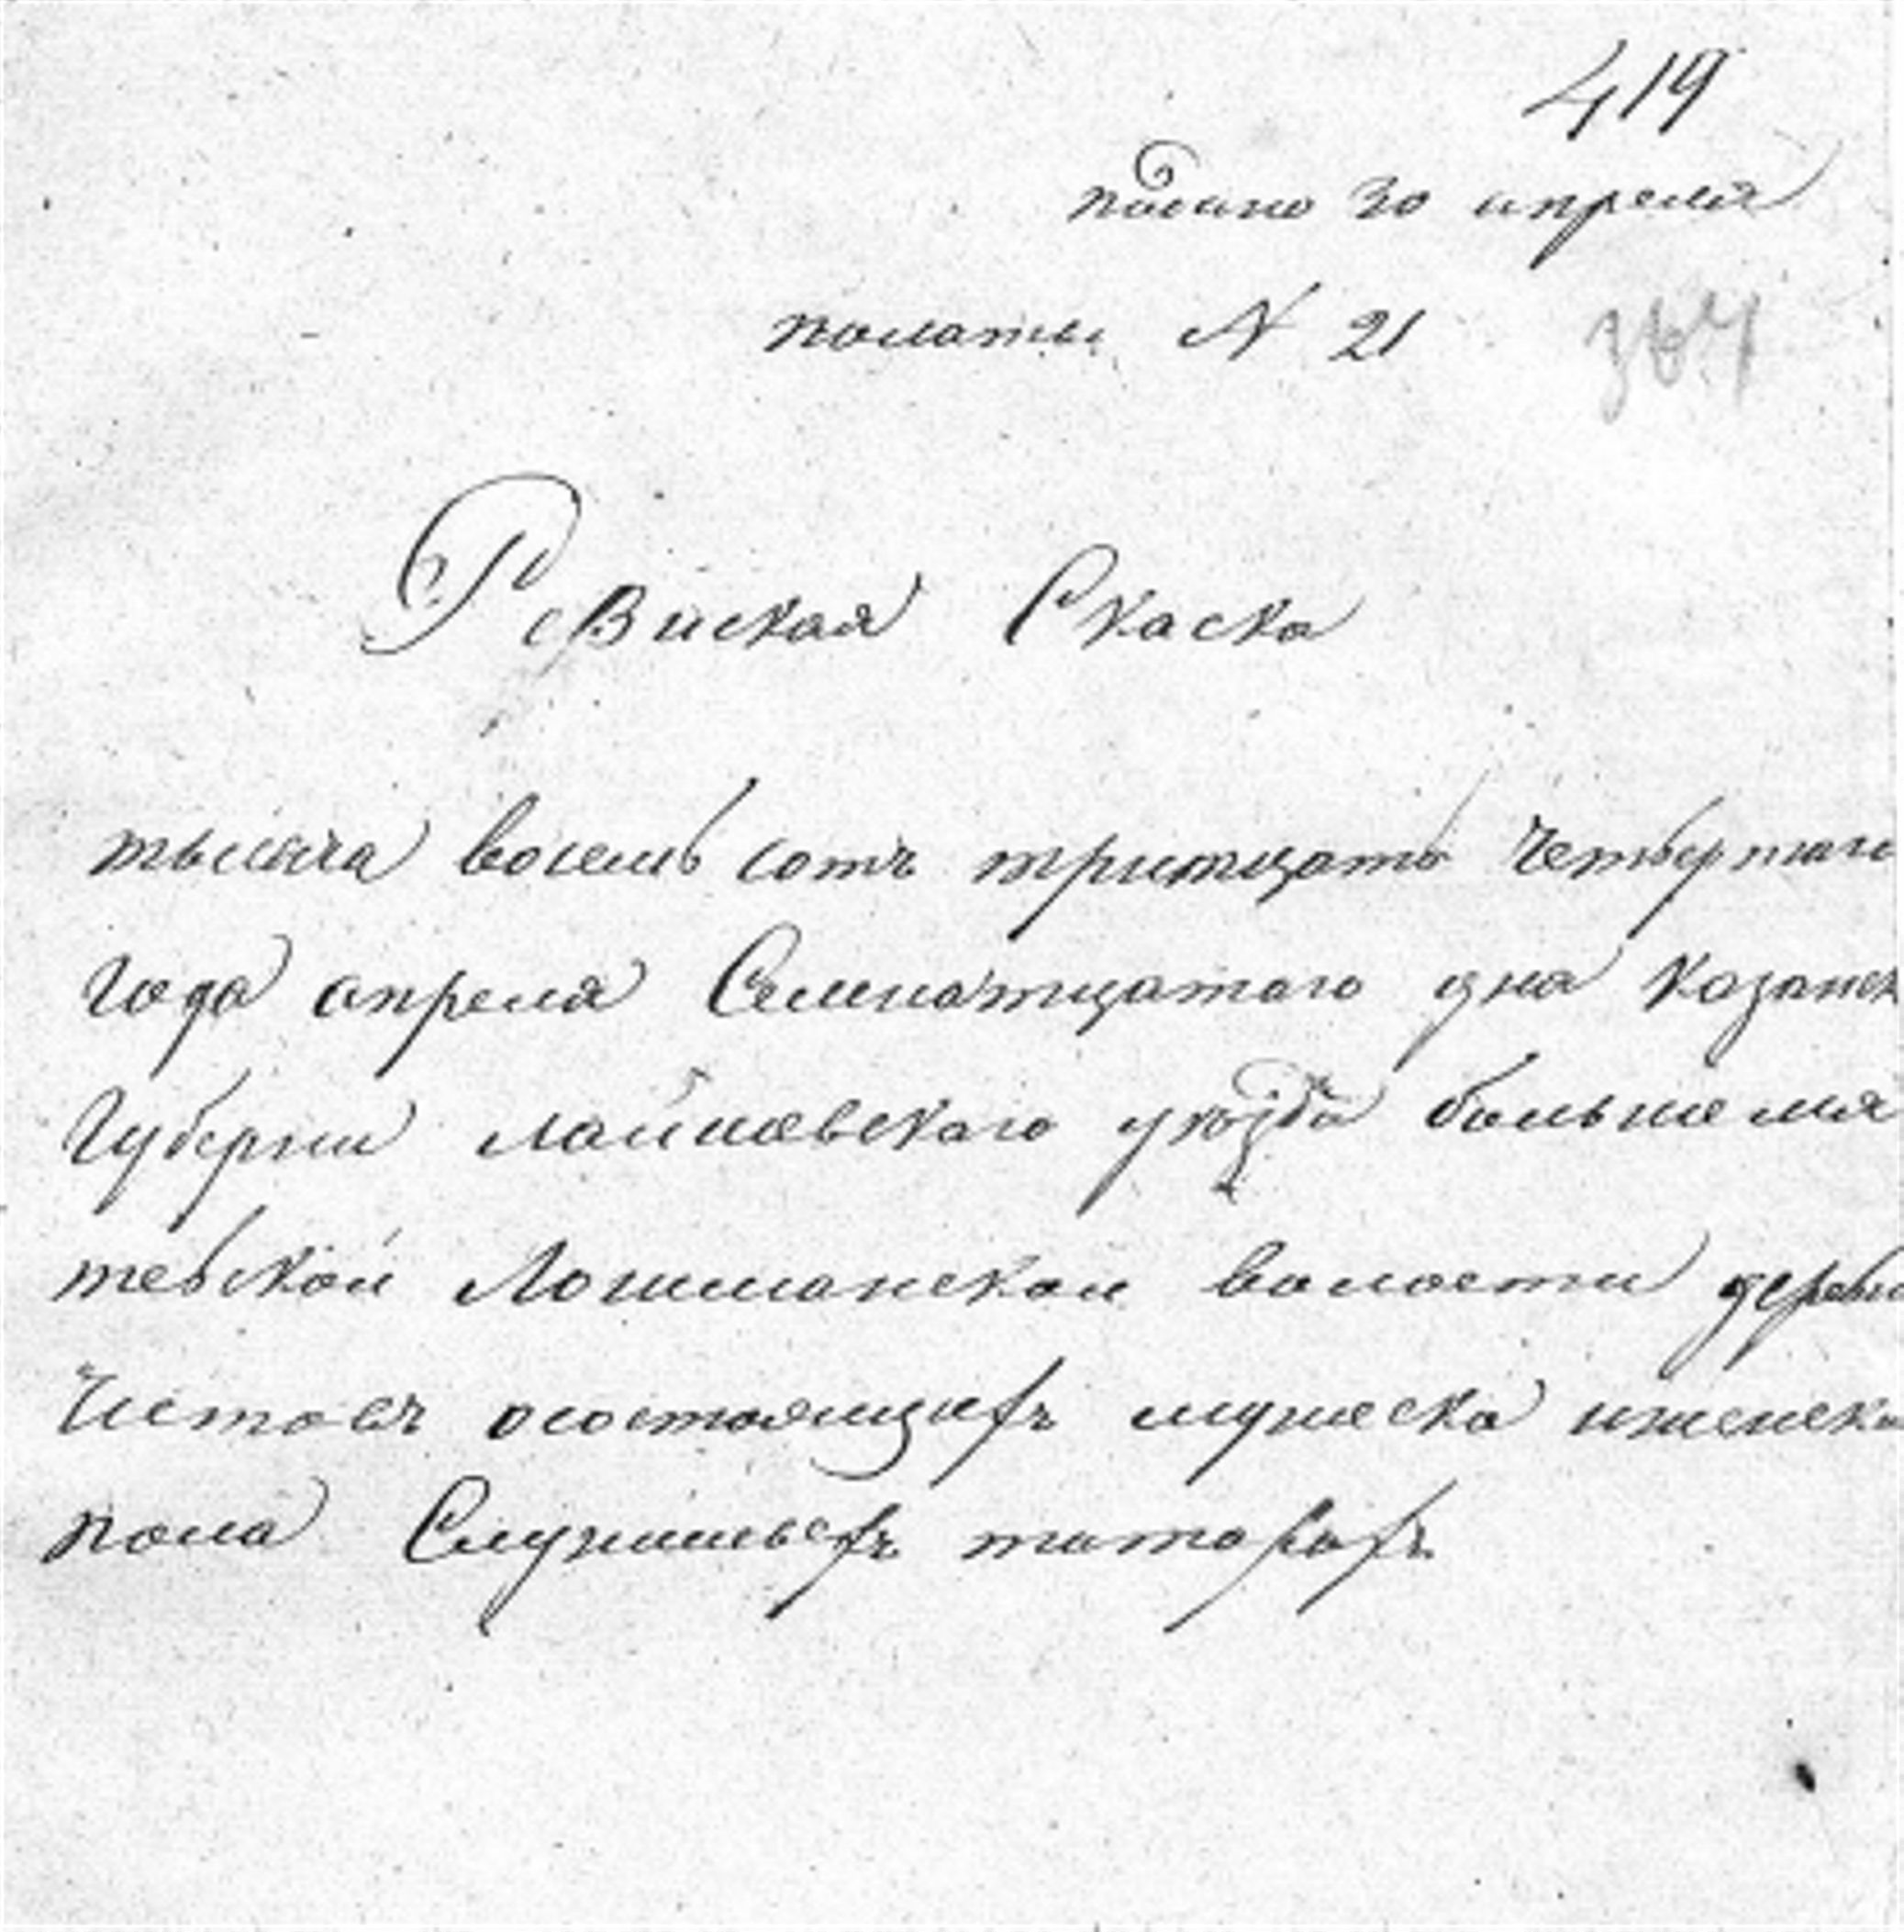 419
подано 30 апреля
полаты N 21
364
Ревиская Скаска
тысяча восемь сотъ тритцать четвертаго
года апреля Семнатцатаго дна казанск
Губерни лаишевскаго уезда большемя
тевской Лошманской волости деревн
Чистовъ осостоящихъ мужеска иженска
пола Служилыхъ татарахъ